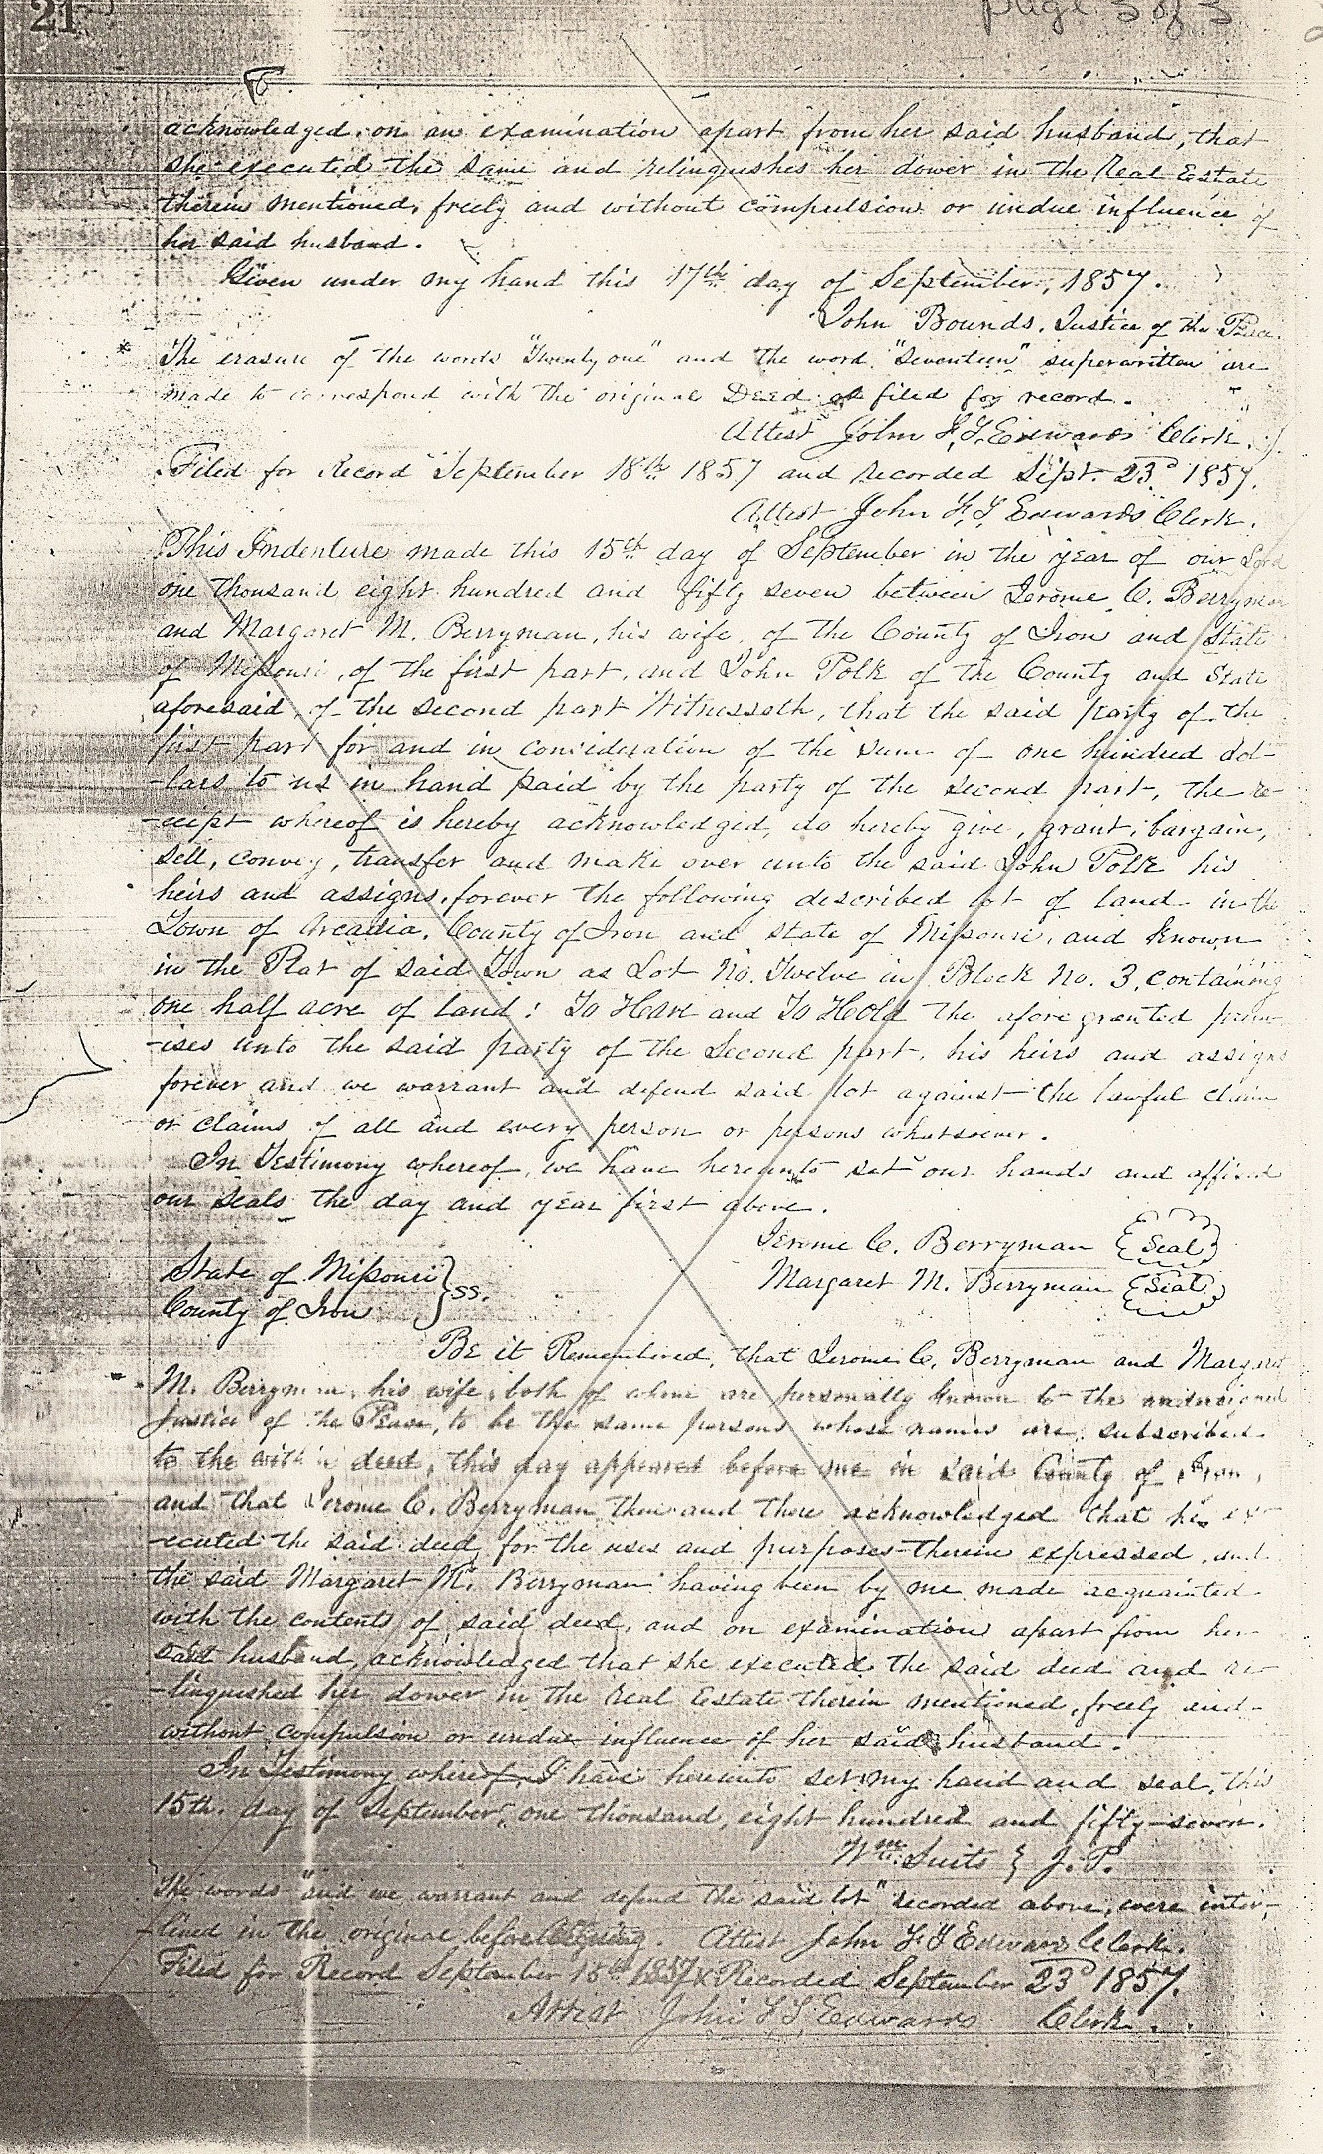 21
page 3 of 3
acknowledged, on an examination apart from her said husband, that
she executed the same and relinquishes her dower in the Real Estate
therein mentioned, freely and without compulsion or undue influence of
her said husband.
Given under my hand this 17th day of September, 1857.
John Bounds, Justice of the Peace.
* The erasure of the words "Twenty one" and the word "Seventeen" superwritten are
made to correspond with the original Deed as filed for record.
Attest John F. T. Edwards Clerk.
Filed for Record September 18th 1857 and recorded Sept. 23d 1857.
Attest John F. T. Edwards Clerk.
This Indenture made this 15th day of September in the year of our Lord
one thousand eight hundred and fifty seven between Jerome C. Berryman
and Margaret M. Berryman, his wife, of the County of Iron and State
of Missouri, of the first part, and John Polk of the County and State
aforesaid, of the second part Witnesseth, that the said party of the
first part for and in consideration of the sum of one hundred dol-
-lars to us in hand paid by the party of the second part, the re-
-ceipt whereof is hereby acknowledged, do hereby give, grant, bargain,
sell, convey, transfer and make over unto the said John Polk his
heirs and assigns, forever the following described lot of land in the
Town of Arcadia, County of Iron and state of Missouri, and known
in the Plat of said Town as Lot No. Twelve in Block No. 3, containing
one half acre of land: To Have and To Hold the afore granted prem-
-ises unto the said party of the Second part, his heirs and assigns
forever and we warrant and defend said lot against the lawful claim
or claims of all and every person or persons whatsoever.
In Testimony whereof, we have hereunto set our hands and affixed
our seals the day and year first above.
Jerome C. Berryman {Seal}
Margaret M. Berryman {Seal}
State of Missouri
County of Iron } ss.
Be it Remembered, that Jerome C. Berryman and Margaret
M. Berryman, his wife, both of whom are personally known to the undersigned
Justice of the Peace, to be the same persons whose names are subscribed
to the within deed, this day appeared before me in said County of Iron,
and that Jerome C. Berryman then and there acknowledged that he ex-
-ecuted the said deed for the uses and purposes therein expressed, and
the said Margaret M. Berryman having been by me made acquainted
with the contents of said deed, and on examination apart from her
said husband, acknowledged that she executed the said deed and re-
-linquished her dower in the Real Estate therein mentioned, freely and
without compulsion or undue influence of her said husband.
In Testimony whereof, I have hereunto set my hand and seal, this
15th. day of September, one thousand, eight hundred and fifty-seven.
Wm. Suits } J. P.
The words "and we warrant and defend the said lot" recorded above, were inter-
-lined in the original before. Attest John F T Edwards Clerk.
Filed for Record September 18th 1857 & Recorded September 23d 1857.
Attest John F T Edwards Clerk.